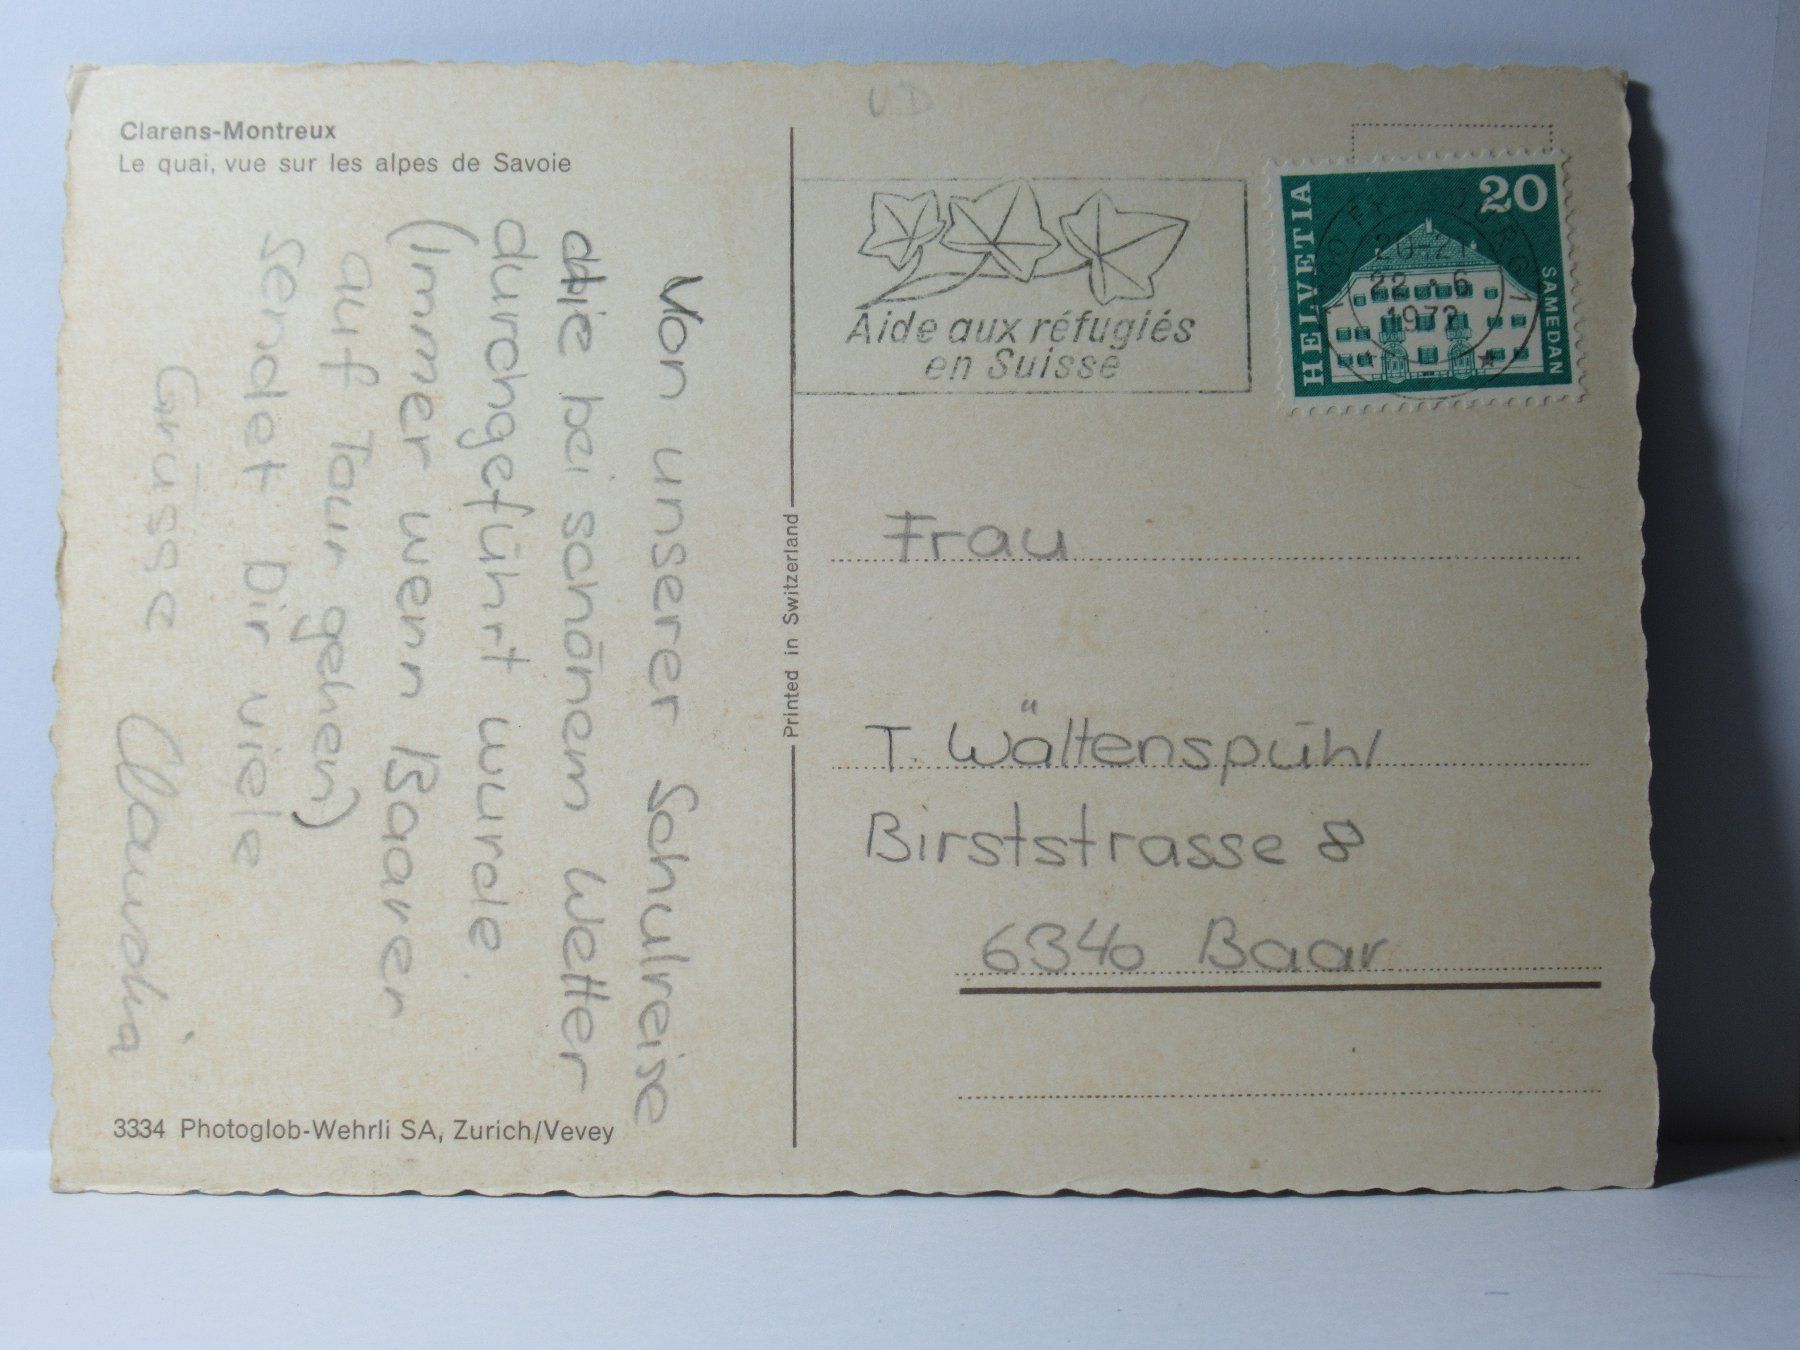 Clarens-Montreux
Le quai, vue sur les alpes de Savoie
Von unserer Schulreise
die bei schönem Wetter
durchgeführt wurde.
(Immer wenn Baarer
auf Tour gehen)
sendet Dir viele
Grüsse Claudia
3334 Photoglob-Wehrli SA, Zurich/Vevey
Printed in Switzerland
UD
Aide aux réfugiés
en Suisse
HELVETIA
20
SAMEDAN
1700 FRIBOURG 1
20-21
22.-6
1972
Frau
T. Wältenspühl
Birststrasse 8
6340 Baar